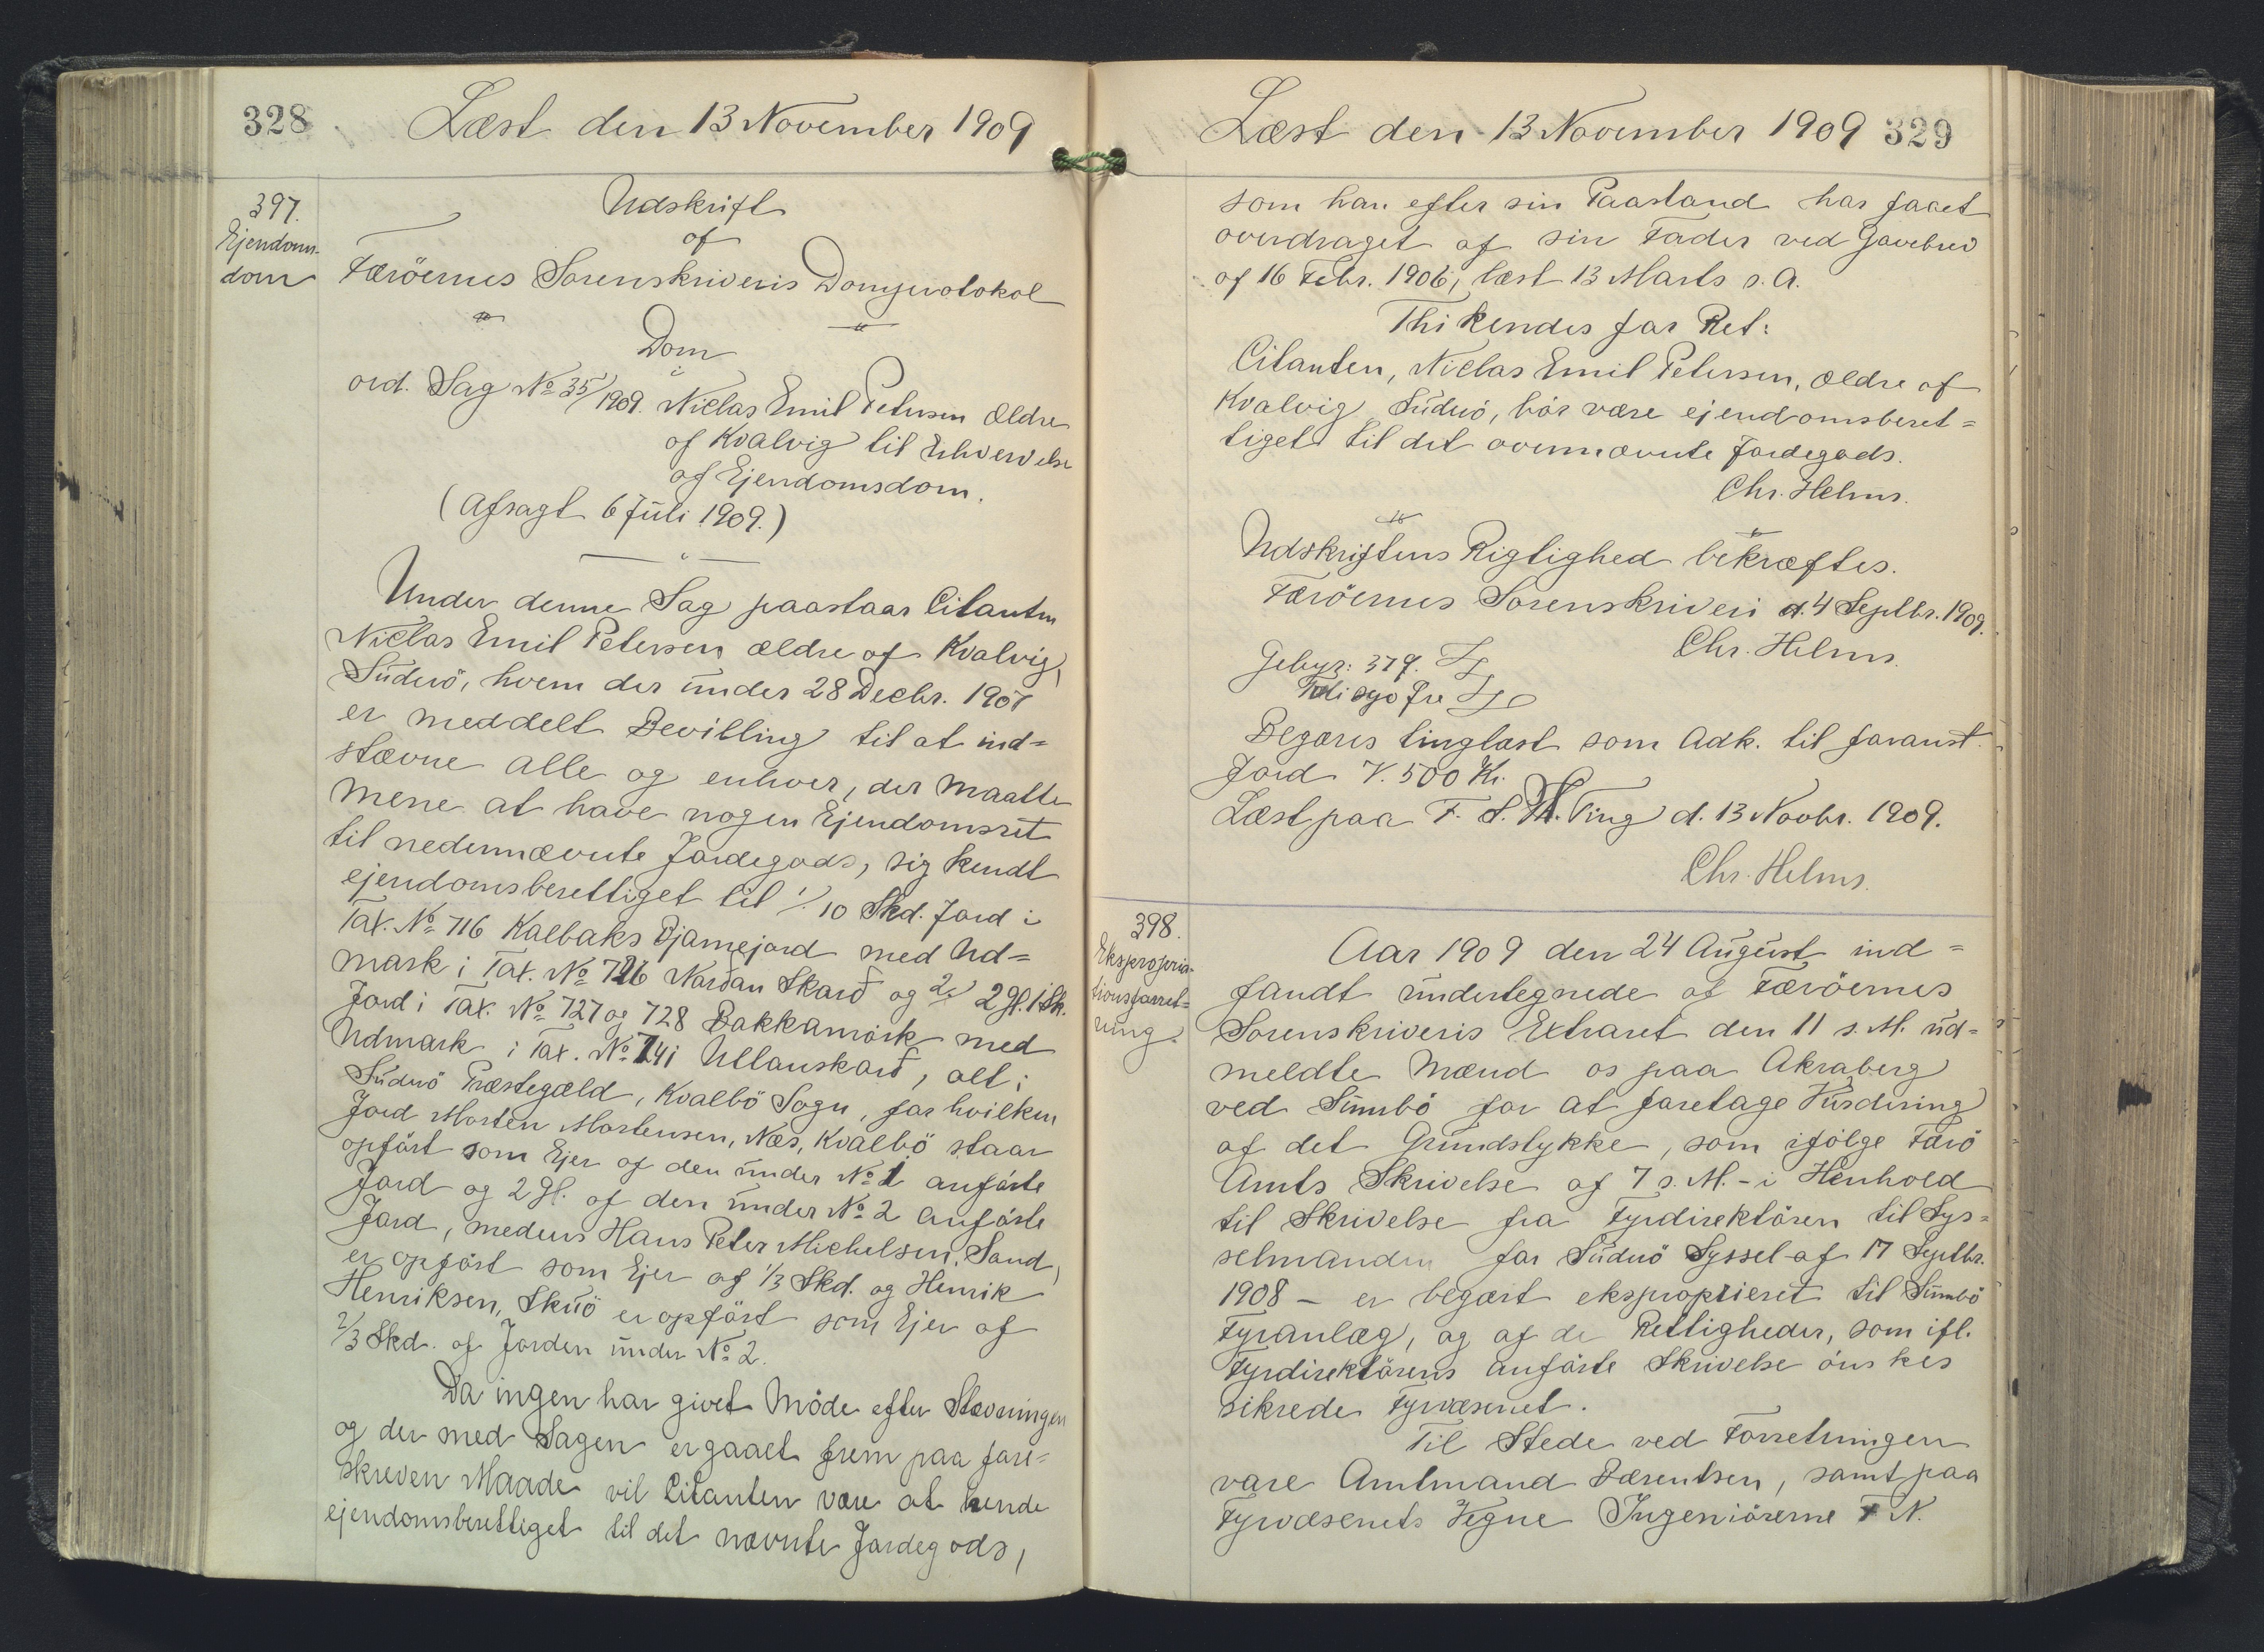 328
Læst den 13 November 1909
397.
Ejendoms-
dom
Udskrift
af
Færöernes Sorenskriveris Domprotokol
Dom
i
ord. Sag No 35/1909. Niclas Emil Petersen ældre
af Kvalvig til Erhvervelse
af Ejendomsdom.
(Afsagt 6 Juli 1909.)
Under denne Sag paastaar Citanten
Niclas Emil Petersen ældre af Kvalvig,
Suderö, hvem der under 28 Decbr. 1907
er meddelt Bevilling til at ind=
stævne alle og enhver, der maatte
mene at have nogen Ejendomsret
til nedennævnte Jordegods, sig kendt
ejendomsberettiget til 1/10 Skd. Jord i
Tax. No 716 Kalbaks Bjarnejord med Ud=
mark i Tax. No 726 Nordan Skarð og 2) 2 Gl. 1 Sk.
Jord i Tax. No 727 og 728 Bakkamörk med
Udmark i Tax. No 741 Ullanskarð, alt i
Suderö Præstegæld, Kvalbö Sogn, for hvilken
Jord Morten Mortensen, Næs, Kvalbö staar
opfört som Ejer af den under No 1 anförte
Jord og 2 Gl. af den under No 2 anförte
Jord, medens Hans Peter Michelsen, Sand,
er opfört som Ejer af 1/3 Skd. og Henrik
Henriksen, Skuö er opfört som Ejer af
2/3 Skd. af Jorden under No 2.
Da ingen har givet Möde efter Stævningen
og der med Sagen er gaaet frem paa fore=
skreven Maade vil Citanten være at kende
ejendomsberettiget til det nævnte Jordegods,
Læst den 13 November 1909
329
som han efter sin Paastand har faaet
overdraget af sin Fader ved Gavebrev
af 16 Febr. 1906, læst 13 Marts s.A.
Thi kendes for Ret:
Citanten, Niclas Emil Petersen, ældre af
Kvalvig, Suderö, bör være ejendomsberet=
tiget til det ovennævnte Jordegods.
Chr. Helms.
Udskriftens Rigtighed bekræftes.
Færöernes Sorenskriveri d. 4 Septbr. 1909.
Chr. Helms.
Gebyr:
Begæres tinglæst som Adk. til foranst.
Jord V. 500 Kr.
Læst paa F. S. H. Ting d. 13 Novbr. 1909.
Chr. Helms.
398.
Ekspropria-
tionsforret=
ning.
Aar 1909 den 24 August ind=
fandt undertegnede af Færöernes
Sorenskriveris Extraret den 11 s.M. ud=
meldte Mænd os paa Akraberg
ved Sumbö for at foretage Vurdering
af det Grundstykke, som ifölge Færö
Amts Skrivelse af 7 s.M. - i Henhold
til Skrivelse fra Fyrdirektören til Sys=
selmanden for Suderö Syssel af 17 Septbr.
1908 - er begært eksproprieret til Sumbö
Fyranlæg, og af de Rettigheder, som ifl.
Fyrdirektörens anförte Skrivelse önskes
sikrede Fyrvæsenet.
Til Stede ved Forretningen
vare Amtmand Bærentsen, samt paa
Fyrvæsenets Vegne Ingeniörerne F N.